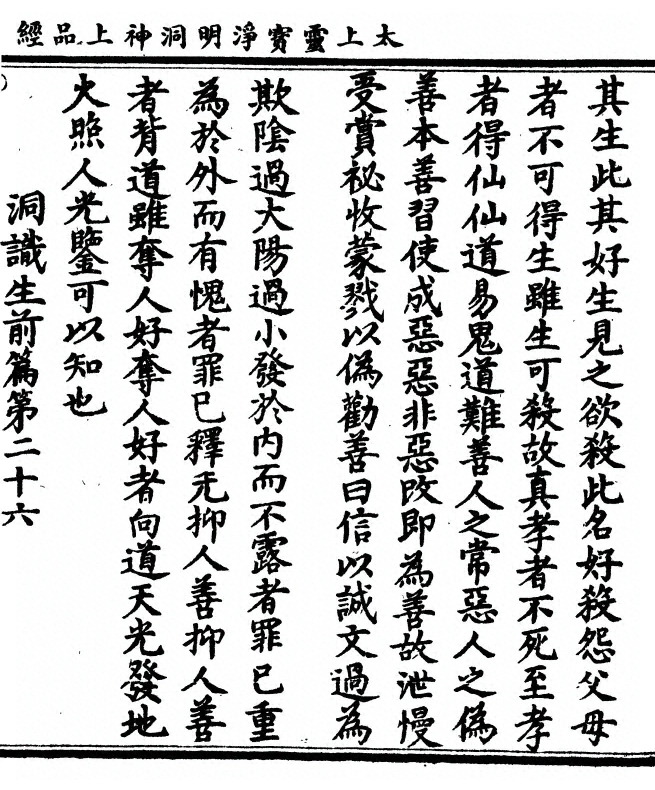 太上靈寳淨明洞神上品經
其生此其好生見之欲殺此名好殺怨父母
者不可得生雖生可殺故真孝者不死至孝
者得仙仙道易鬼道難善人之常惡人之偽
善本善習使成惡惡非惡改即為善故泄慢
受賞祕收蒙戮以偽勸善曰信以誠文過為
欺陰過大陽過小發於内而不露者罪已重
為於外而有愧者罪已釋旡抑人善抑人善
者背道雖奪人好奪人好者向道天光發地
火照人光鑒可以知也
洞識生前篇第二十六